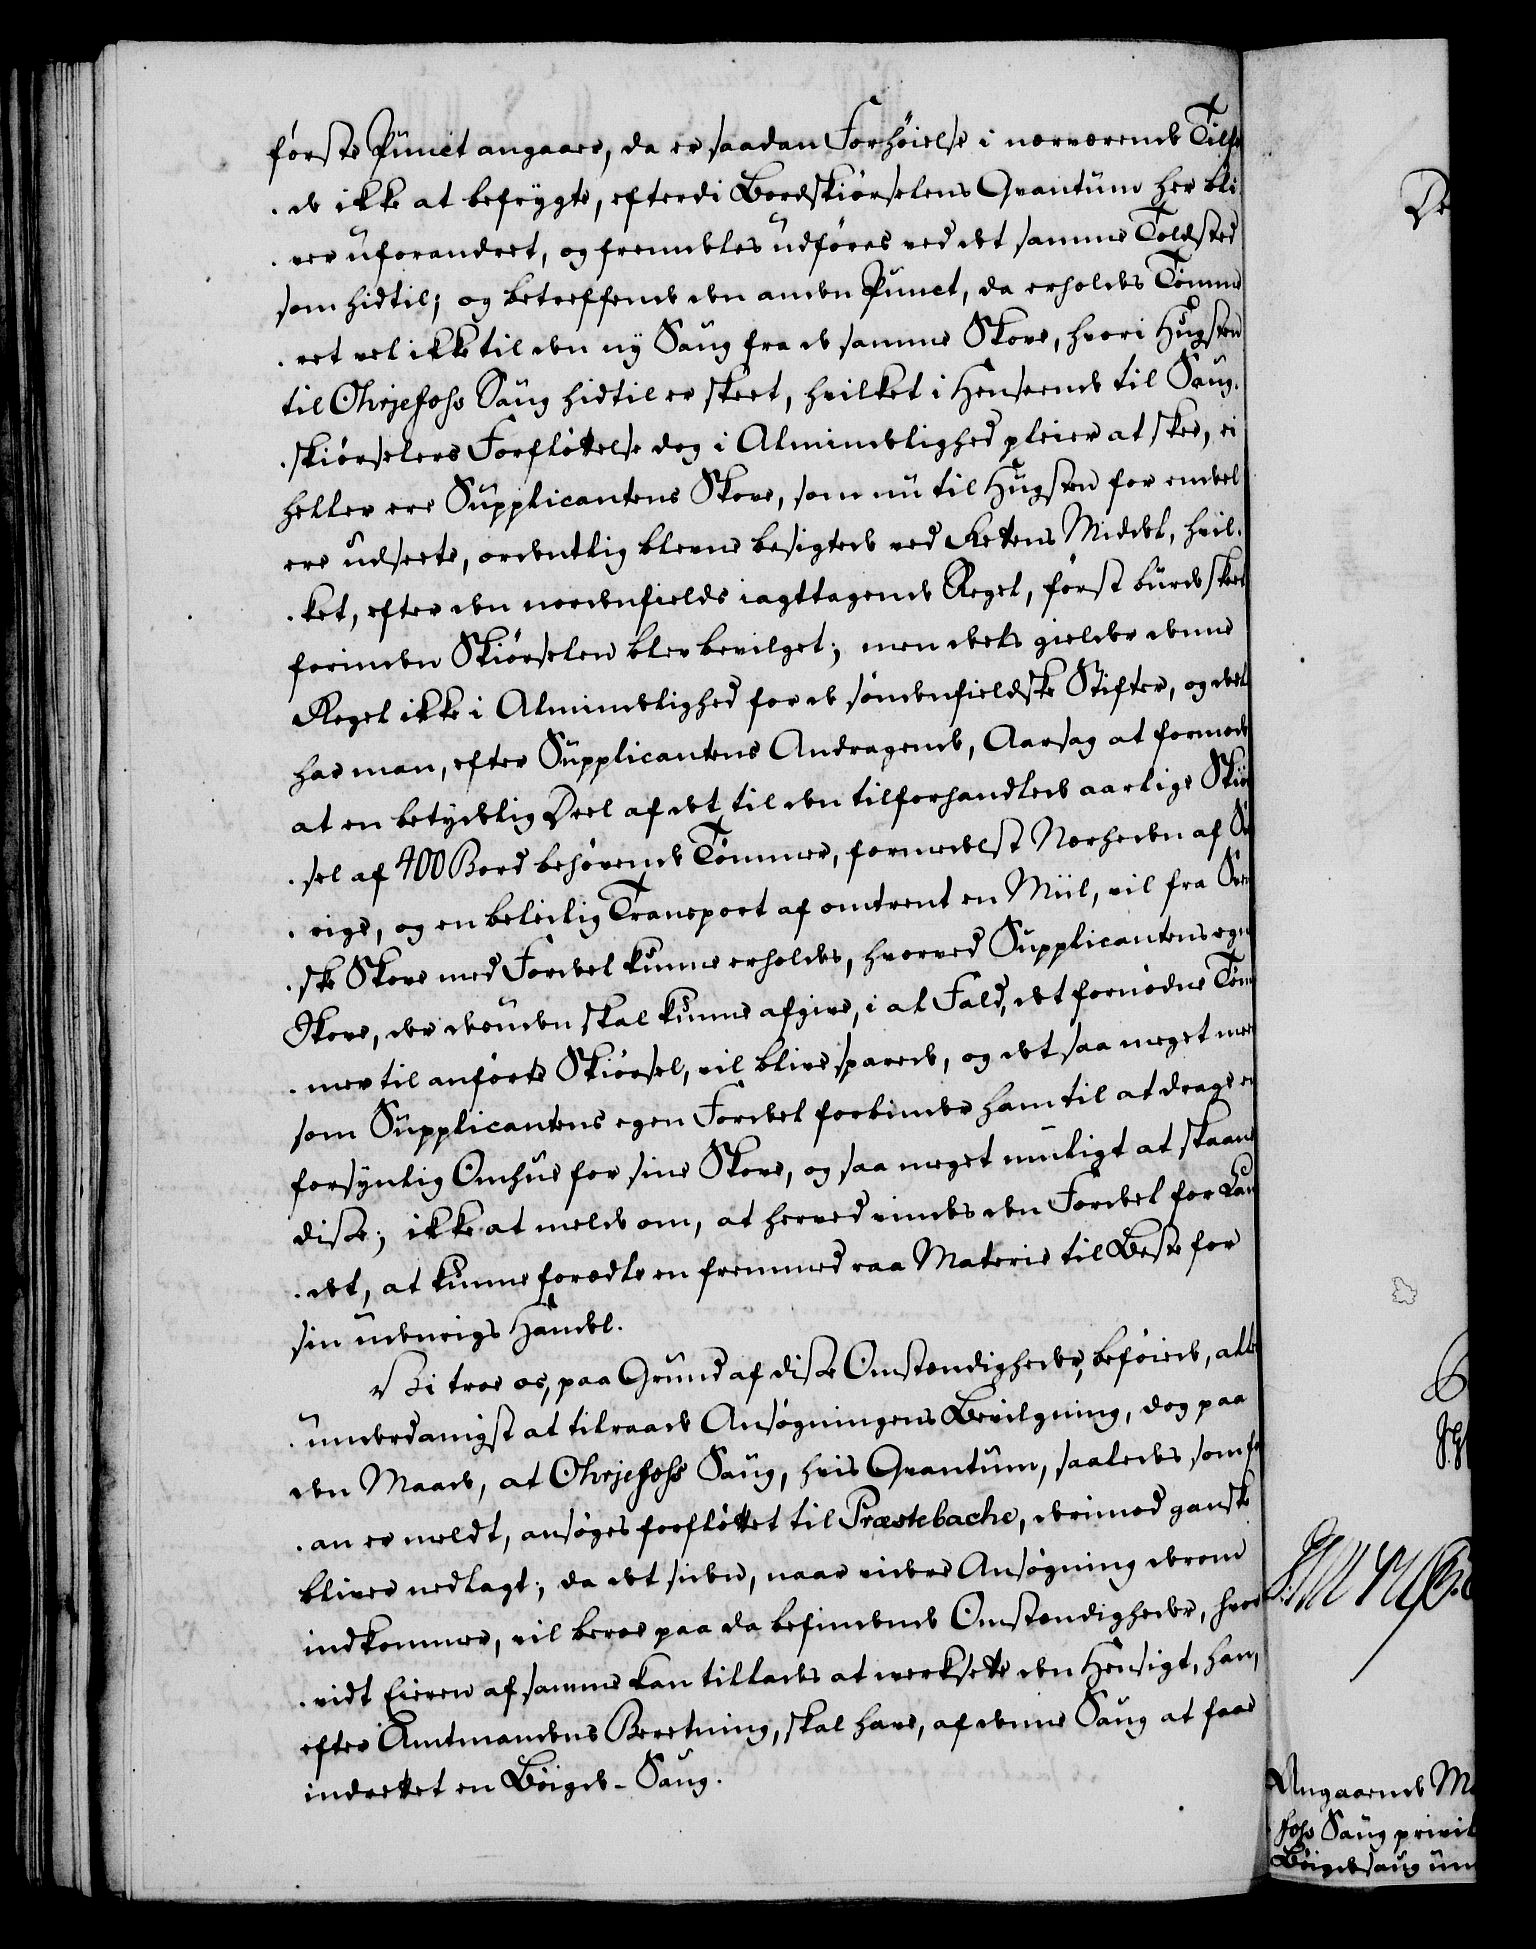 første Punct angaaer, da er saadan Forhøielse i nærværende Tilfæ
de ikke at befrygte, efterdi Bordskiørselens Qvantum her bli
ver uforandret, og fremdeles udføres ved det samme Toldsted
som hidtil; og betreffende den anden Punct, da erholdes Tømme
ret vel ikke til den ny Saug fra de samme Skove, hvori Hugsten
til Ohrjefoss Saug hidtil er skeet, hvilket i Henseende til Saug-
skiørselers Forfløttelse dog i Almindelighed pleier at skee, ei
heller ere Supplicantens Skove, som nu til Hugsten for endeel
ere udseete, ordentlig blevne besigtede ved Rettens Middel, hvil-
ket, efter den nordenfields iagttagende Regel, først burde skeet
forinden Skiørselen blev bevilget; men deels gielder denne
Regel ikke i Almindelighed for de søndenfieldske Stifter, og deels
har man, efter Supplicantens Andragende, Aarsag at formode
at en betydelig Deel af det til den tilforhandlede aarlige Skiør
sel af 400 Bord behøvende Tømmer, formedelst Nærheden af Sve
rige, og en beleilig Transport af omtrent en Miil, vil fra Sven
ske Skove med Fordeel kunne erholdes, hvorved Supplicantens egne
Skove, der desuden skal kunne afgive, i al Fald, det fornødne Tøm
mer til anførte Skiørsel, vil blive sparede, og det saa meget meer
som Supplicantens egen Fordeel forbinder ham til at drage en
forsynlig Omhue for sine Skove, og saa meget muligt at skaane
disse; ikke at melde om, at herved vindes den Fordeel for Lan
det, at kunne forædle en fremmed raa Materie til Beste for
sin udenrigs Handel.
Vi troe os, paa Grund af disse Omstændigheder, beføiede, aller
underdanigst at tilraade Ansøgningens Bevilgning, dog paa
den Maade, at Ohrjefoss Saug, hvis Qvantum, saaledes som for
an er meldt, ansøges forfløttet til Præstebache, derimod ganske
bliver nedlagt; da det siden, naar videre Ansøgning derom
indkommer, vil beroe paa da befindende Omstændigheder, hvor
vidt Eieren af samme kan tillades at værksette den Hensigt, han,
efter Amtmandens Beretning, skal have, af denne Saug at faae
indrettet en Bøigde-Saug.
De
Angaaende M
foss Saug privil
Bøigdesaug un